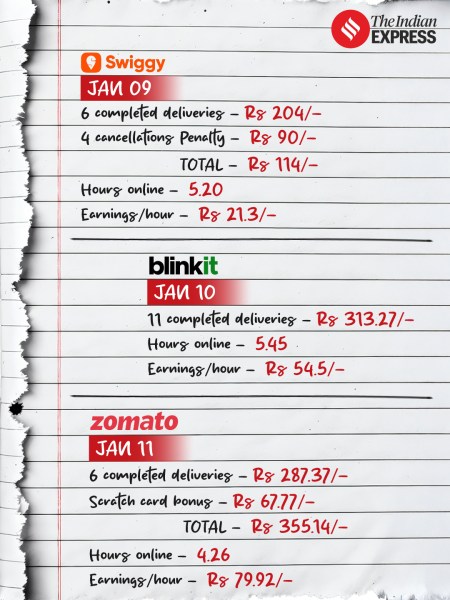 The Indian
EXPRESS
Swiggy
JAN 09
6 completed deliveries – Rs 204/–
4 cancellations Penalty – Rs 90/–
TOTAL – Rs 114/–
Hours online – 5.20
Earnings/hour – Rs 21.3/–
blinkit
JAN 10
11 completed deliveries – Rs 313.27/–
Hours online – 5.45
Earnings/hour – Rs 54.5/–
zomato
JAN 11
6 completed deliveries – Rs 287.37/–
Scratch card bonus – Rs 67.77/–
TOTAL – Rs 355.14/–
Hours online – 4.26
Earnings/hour – Rs 79.92/–